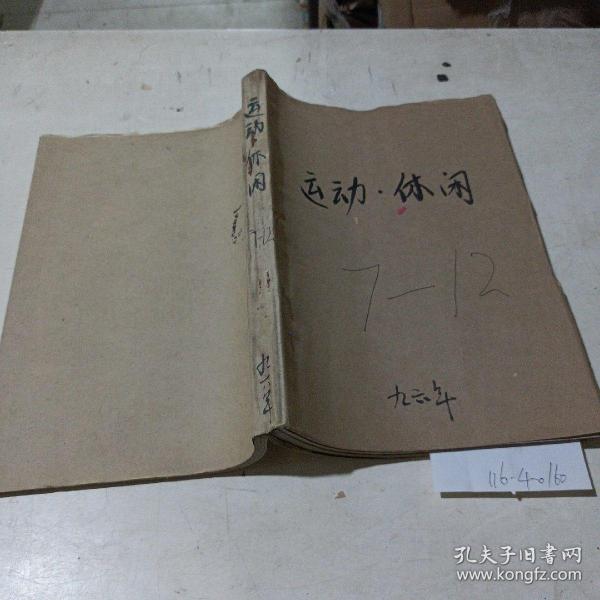 运动·休闲
7-12
九六年
运动·休闲
7-12
九六年
116-4-0160
孔夫子旧书网
www.kongfz.com